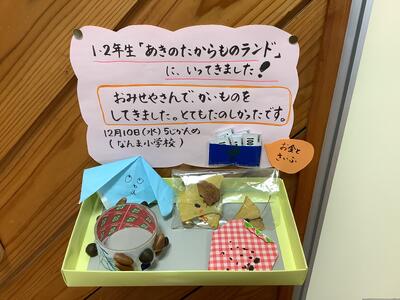 1・2年生「あきのたからものランド」
に、いってきました!
おみせやさんで、かいものを
してきました。とてもたのしかったです。
12月10日(水)5じかんめ
(なんま小学校)
お金と
さいふ